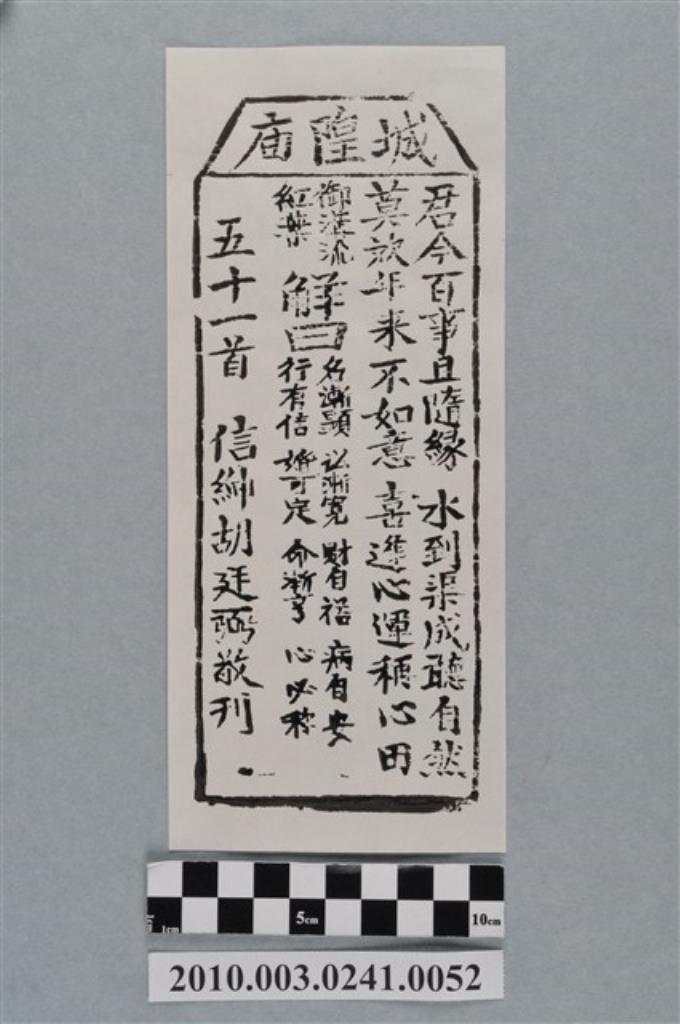 城隍庙
君今百事且隨緣 水到渠成聽自然
莫欢年来不如意 喜逢心運稱心田
御溝流
紅葉
解曰
名漸顯 讼漸寛 財自裕 病自安
行有信 婚可定 命漸亨 心必称
五十一首 信紳胡廷弼敬刊
5cm
10cm
1cm
2010.003.0241.0052